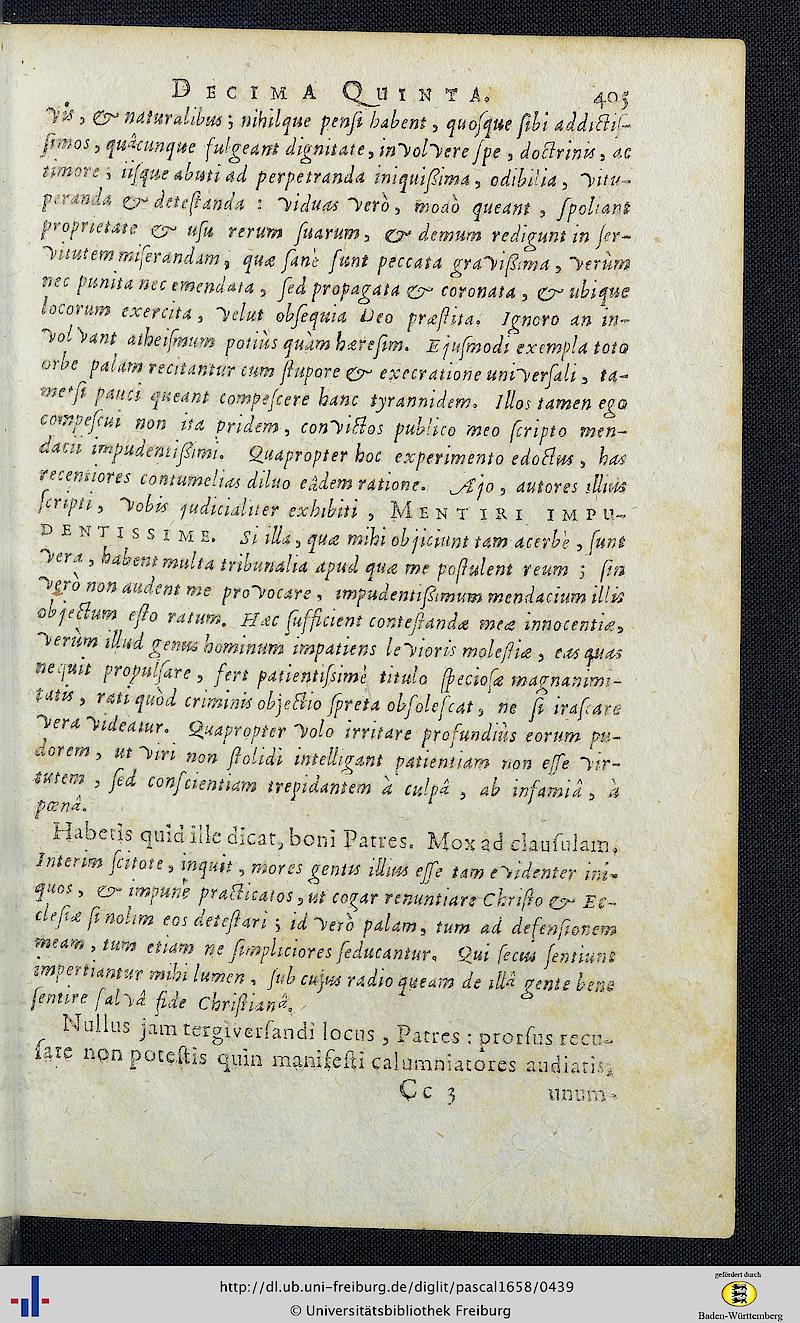 DECIMA QUINTA. 405
vis, & naturalibus; nihilque pensi habent, quosque sibi addictiſ-
ſimos, quâcunque fulgeant dignitate, involvere ſpe, doctrinis, ac
timore; iiſque abuti ad perpetranda iniquiſſima, odibilia, vitu-
peranda & deteſtanda: viduas verò, modò queant, ſpoliant
proprietate & uſu rerum ſuarum, & demum redigunt in ſer-
vitutem miſerandam, quæ ſanè ſunt peccata graviſſima, verùm
nec punita nec emendata, ſed propagata & coronata, & ubique
locorum exercita, velut obſequia Deo præſtita. Ignoro an in-
volvant atheiſmum potiùs quàm hæreſim. Ejuſmodi exempla toto
orbe palam recitantur cum ſtupore & execratione univerſali, ta-
metſi pauci queant compeſcere hanc tyrannidem. Illos tamen ego
compeſcui non ita pridem, convictos publico meo ſcripto men-
dacii impudentiſſimi. Quapropter hoc experimento edoctus, has
recentiores contumelias diluo eâdem ratione. Ajo, autores illius
ſcripti, vobis judicialiter exhibiti, MENTIRI IMPU-
DENTISSIME. Si illa, quæ mihi objiciunt tam acerbè, ſunt
vera, habent multa tribunalia apud quæ me poſtulent reum; ſin
verò non audent me provocare, impudentiſſimum mendacium illis
objectum eſto ratum. Hæc ſufficient conteſtandæ meæ innocentiæ,
verùm illud genus hominum impatiens levioris moleſtiæ, eas quas
nequit propulſare, fert patientiſſimè titulo ſpecioſæ magnanimi-
tatis, rati quòd criminis objectio ſpreta obſoleſcat, ne ſi iraſcare
vera videatur. Quapropter volo irritare profundiùs eorum pu-
dorem, ut viri non ſtolidi intelligant patientiam non eſſe vir-
tutem, ſed conſcientiam trepidantem à culpâ, ab infamiâ, à
pœnâ.
Habetis quid ille dicat, boni Patres. Mox ad clauſulam,
Interim ſcitote, inquit, mores gentis illius eſſe tam evidenter ini-
quos, & impunè practicatos, ut cogar renuntiare Chriſto & Ec-
cleſiæ ſi nolim eos deteſtari; id verò palam, tum ad defenſionem
meam, tum etiam ne ſimpliciores ſeducantur. Qui ſecus ſentiunt
impertiantur mihi lumen, ſub cujus radio queam de illâ gente bene
ſentire ſalvâ fide Chriſtianâ.
Nullus jam tergiverſandi locus, Patres: prorſus recu-
ſare non poteſtis quin manifeſti calumniatores audiatis,
Cc 3 unum-
http://dl.ub.uni-freiburg.de/diglit/pascal1658/0439
© Universitätsbibliothek Freiburg
gefördert durch
Baden-Württemberg